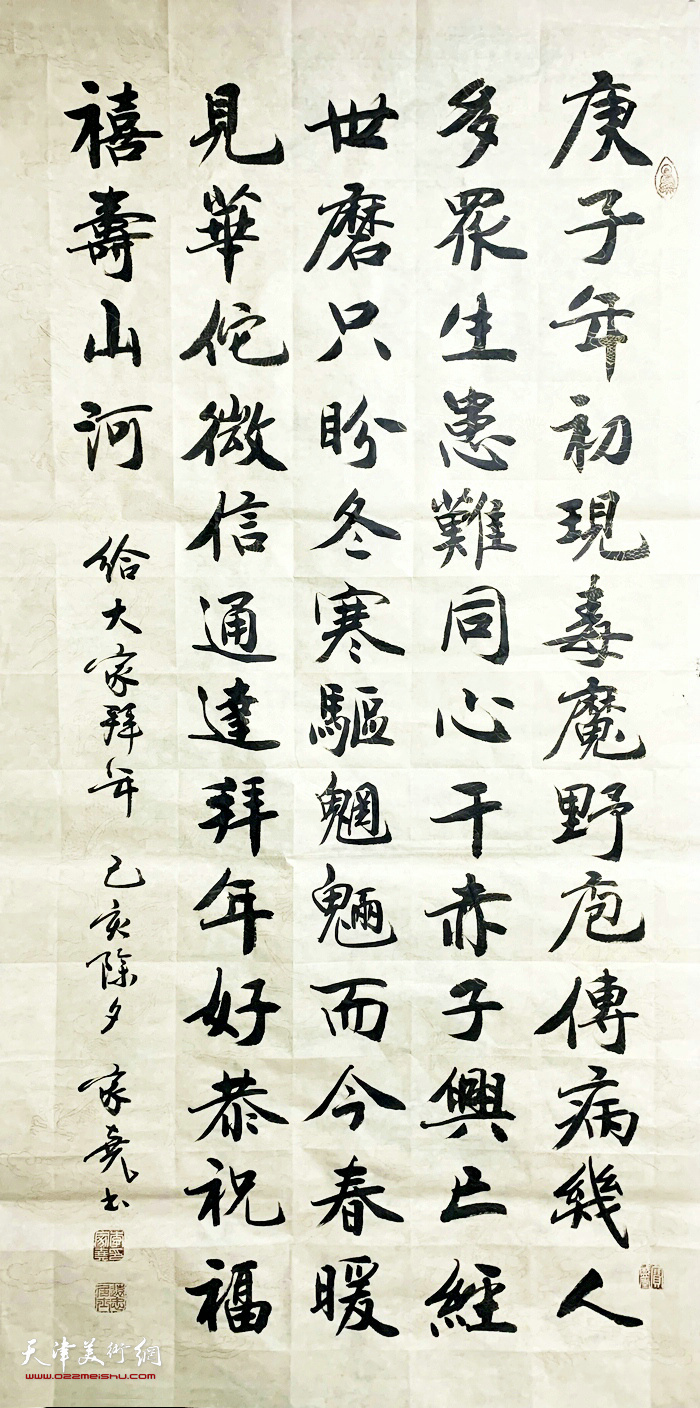 庚子年初現毒魔野疱傳病幾人
多眾生患難同心干赤子興亡經
世磨只盼冬寒驅魍魎而今春暖
見華佗微信通達拜年好恭祝福
禧壽山河
給大家拜年 己亥除夕 家堯书
天津美術網
www.022meishu.com